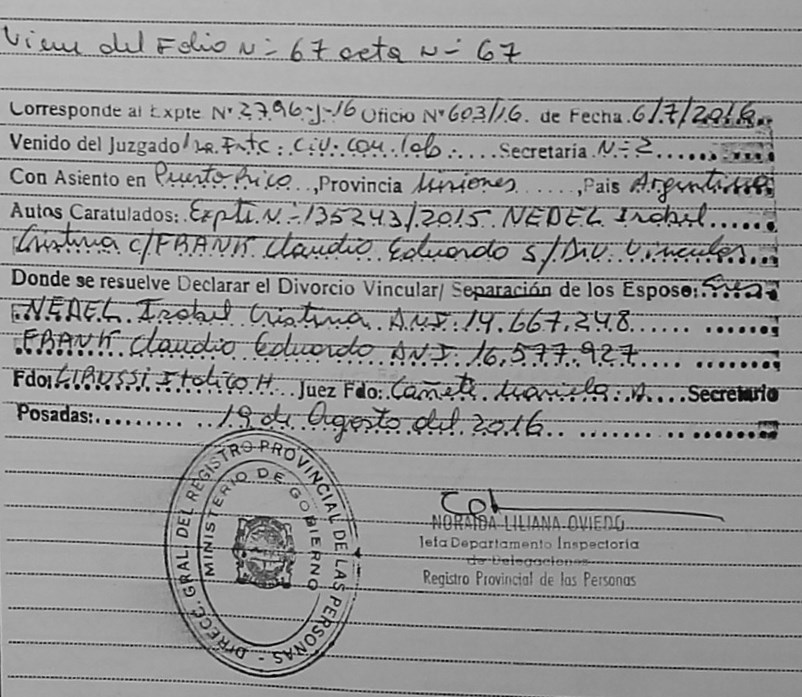 Viene del Folio N= 67 acta N= 67
Corresponde al Expte N° 2796-J-16 Oficio N° 603/16. de Fecha 6/7/2016
Venido del Juzgado 1ra. Inst. Civ. Com. lab. Secretaria N=2
Con Asiento en Puerto Rico, Provincia Misiones, Pais Argentina
Autos Caratulados: Expte. N=135243/2015 NEDEL Isabel
Cristina c/FRANK Claudio Eduardo s/Div. Vincular
Donde se resuelve Declarar el Divorcio Vincular/ Separación de los Esposo:
NEDEL Isabel Cristina D.N.I. 14.667.248
FRANK Claudio Eduardo D.N.I. 16.577.927
Fdo: H. Juez Fdo: Cañete Mariela A. Secretario
Posadas: 19 de Agosto del 2016
DIRECC. GRAL. DEL REGISTRO PROVINCIAL DE LAS PERSONAS -
MINISTERIO DE GOBIERNO
NORAIDA LILIANA OVIEDO
Jefa Departamento Inspectoria
de Delegaciones
Registro Provincial de las Personas